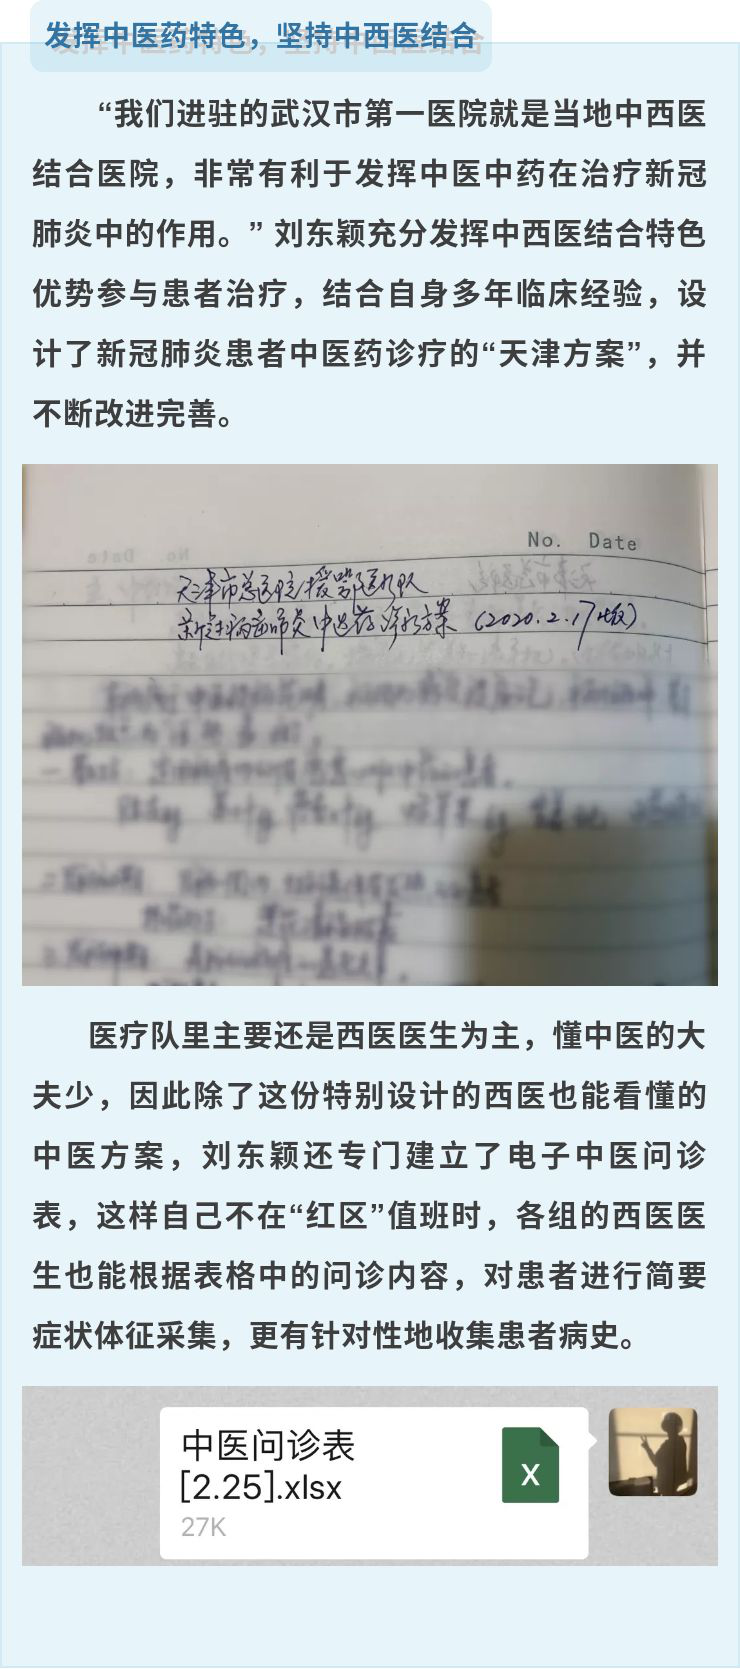 发挥中医药特色，坚持中西医结合
“我们进驻的武汉市第一医院就是当地中西医
结合医院，非常有利于发挥中医中药在治疗新冠
肺炎中的作用。” 刘东颖充分发挥中西医结合特色
优势参与患者治疗，结合自身多年临床经验，设
计了新冠肺炎患者中医药诊疗的“天津方案”，并
不断改进完善。
No. Date
天津市总医院援鄂医疗队
新冠病毒肺炎中医药诊疗方案（2020.2.17版）
医疗队里主要还是西医医生为主，懂中医的大
夫少，因此除了这份特别设计的西医也能看懂的
中医方案，刘东颖还专门建立了电子中医问诊
表，这样自己不在“红区”值班时，各组的西医医
生也能根据表格中的问诊内容，对患者进行简要
症状体征采集，更有针对性地收集患者病史。
中医问诊表
[2.25].xlsx
X
27K